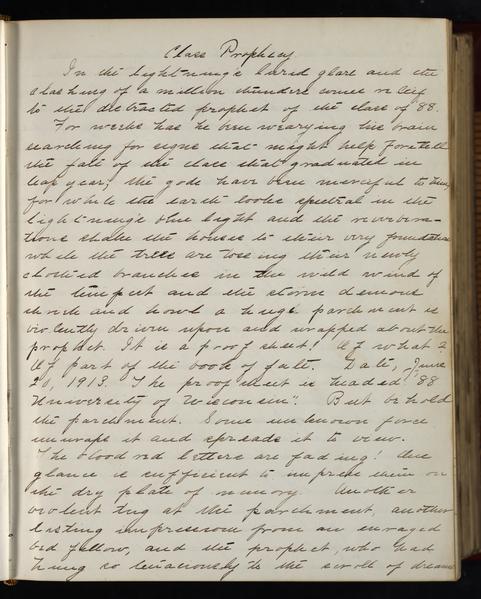 Class Prophecy
In the lightning's lurid glare and the
clashing of a million thunders comes relief
to the distracted prophet of the class of '88.
For weeks has he been wearying his brain
searching for signs that might help foretell
the fate of the class that graduated in
leap year; the gods have been merciful to him,
for while the earth looks spectral in the
lightning's blue light and the reverbera-
tions shake the houses to their very foundation
while the trees are tossing their newly
clothed branches in the wild wind of
the tempest and the storm demons
shriek and howl a huge parchment is
violently driven upon and wrapped about the
prophet. It is a proof sheet! Of what?
Of part of the book of fate. Date, June
20, 1913. The proof sheet is headed '88
University of Wisconsin". But behold
the parchment. Some unknown force
unwraps it and spreads it to view.
The blood red letters are fading! One
glance is sufficient to impress them on
the dry plate of memory. Another
violent tug at the parchment, another
lasting impression from an enraged
bed fellow, and the prophet, who had
hung so tenaciously to the scroll of dreams